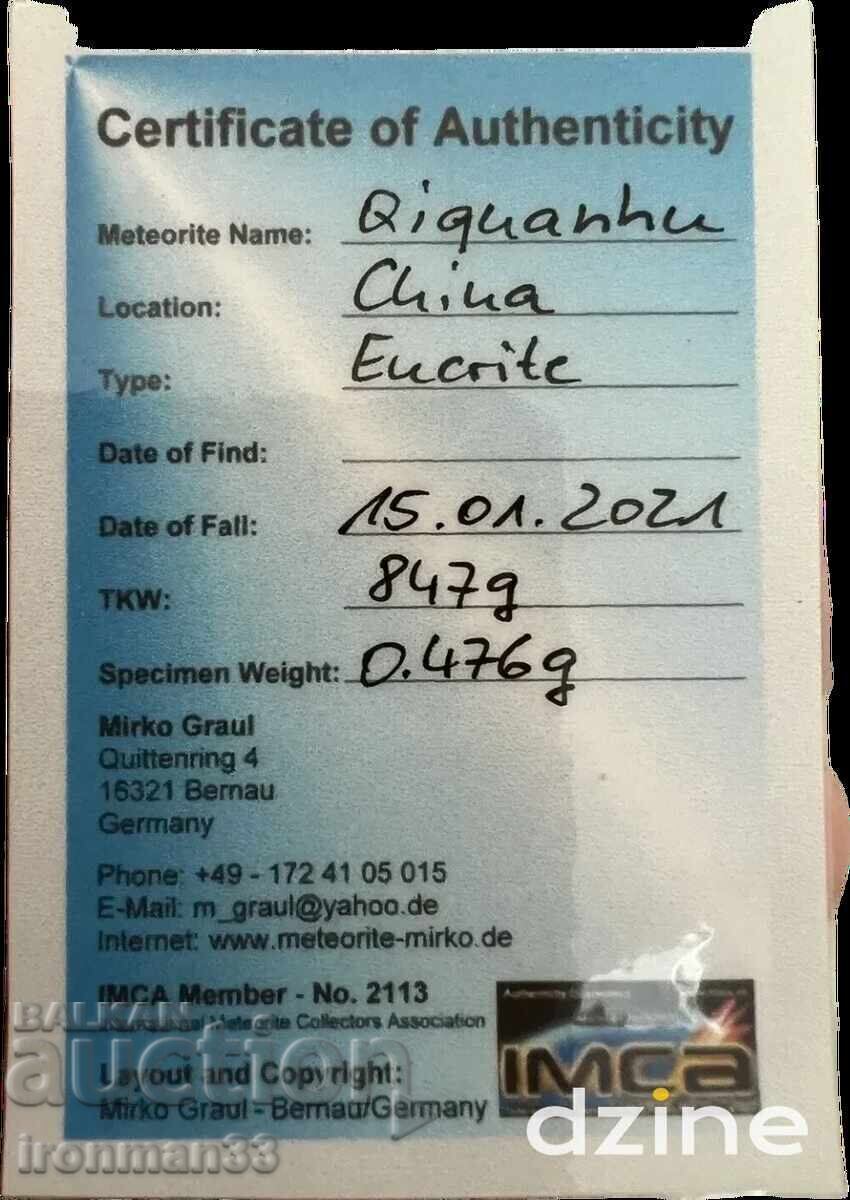 Certificate of Authenticity
Meteorite Name: Qiquanhu
Location: China
Type: Eucrite
Date of Find:
Date of Fall: 15.01.2021
TKW: 847g
Specimen Weight: 0.476g
Mirko Graul
Quittenring 4
16321 Bernau
Germany
Phone: +49 - 172 41 05 015
E-Mail: m_graul@yahoo.de
Internet: www.meteorite-mirko.de
IMCA Member - No. 2113
International Meteorite Collectors Association
Layout and Copyright:
Mirko Graul - Bernau/Germany
IMCA
BALKAN
auction
ironman33
dzine